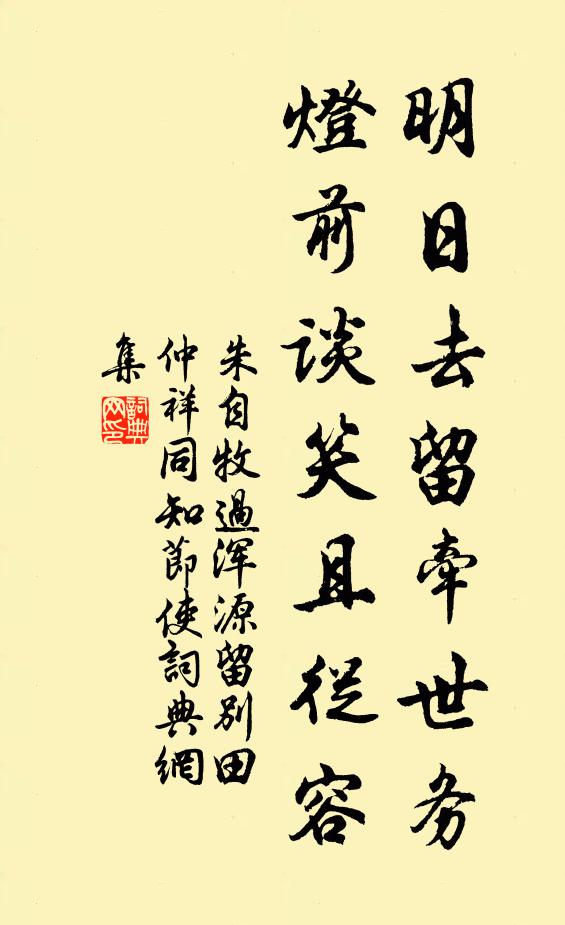 明日去留牽世务
燈前談笑且從容
朱自牧過渾源留別田
仲祥同知節使詞典網
集
詞典
网印